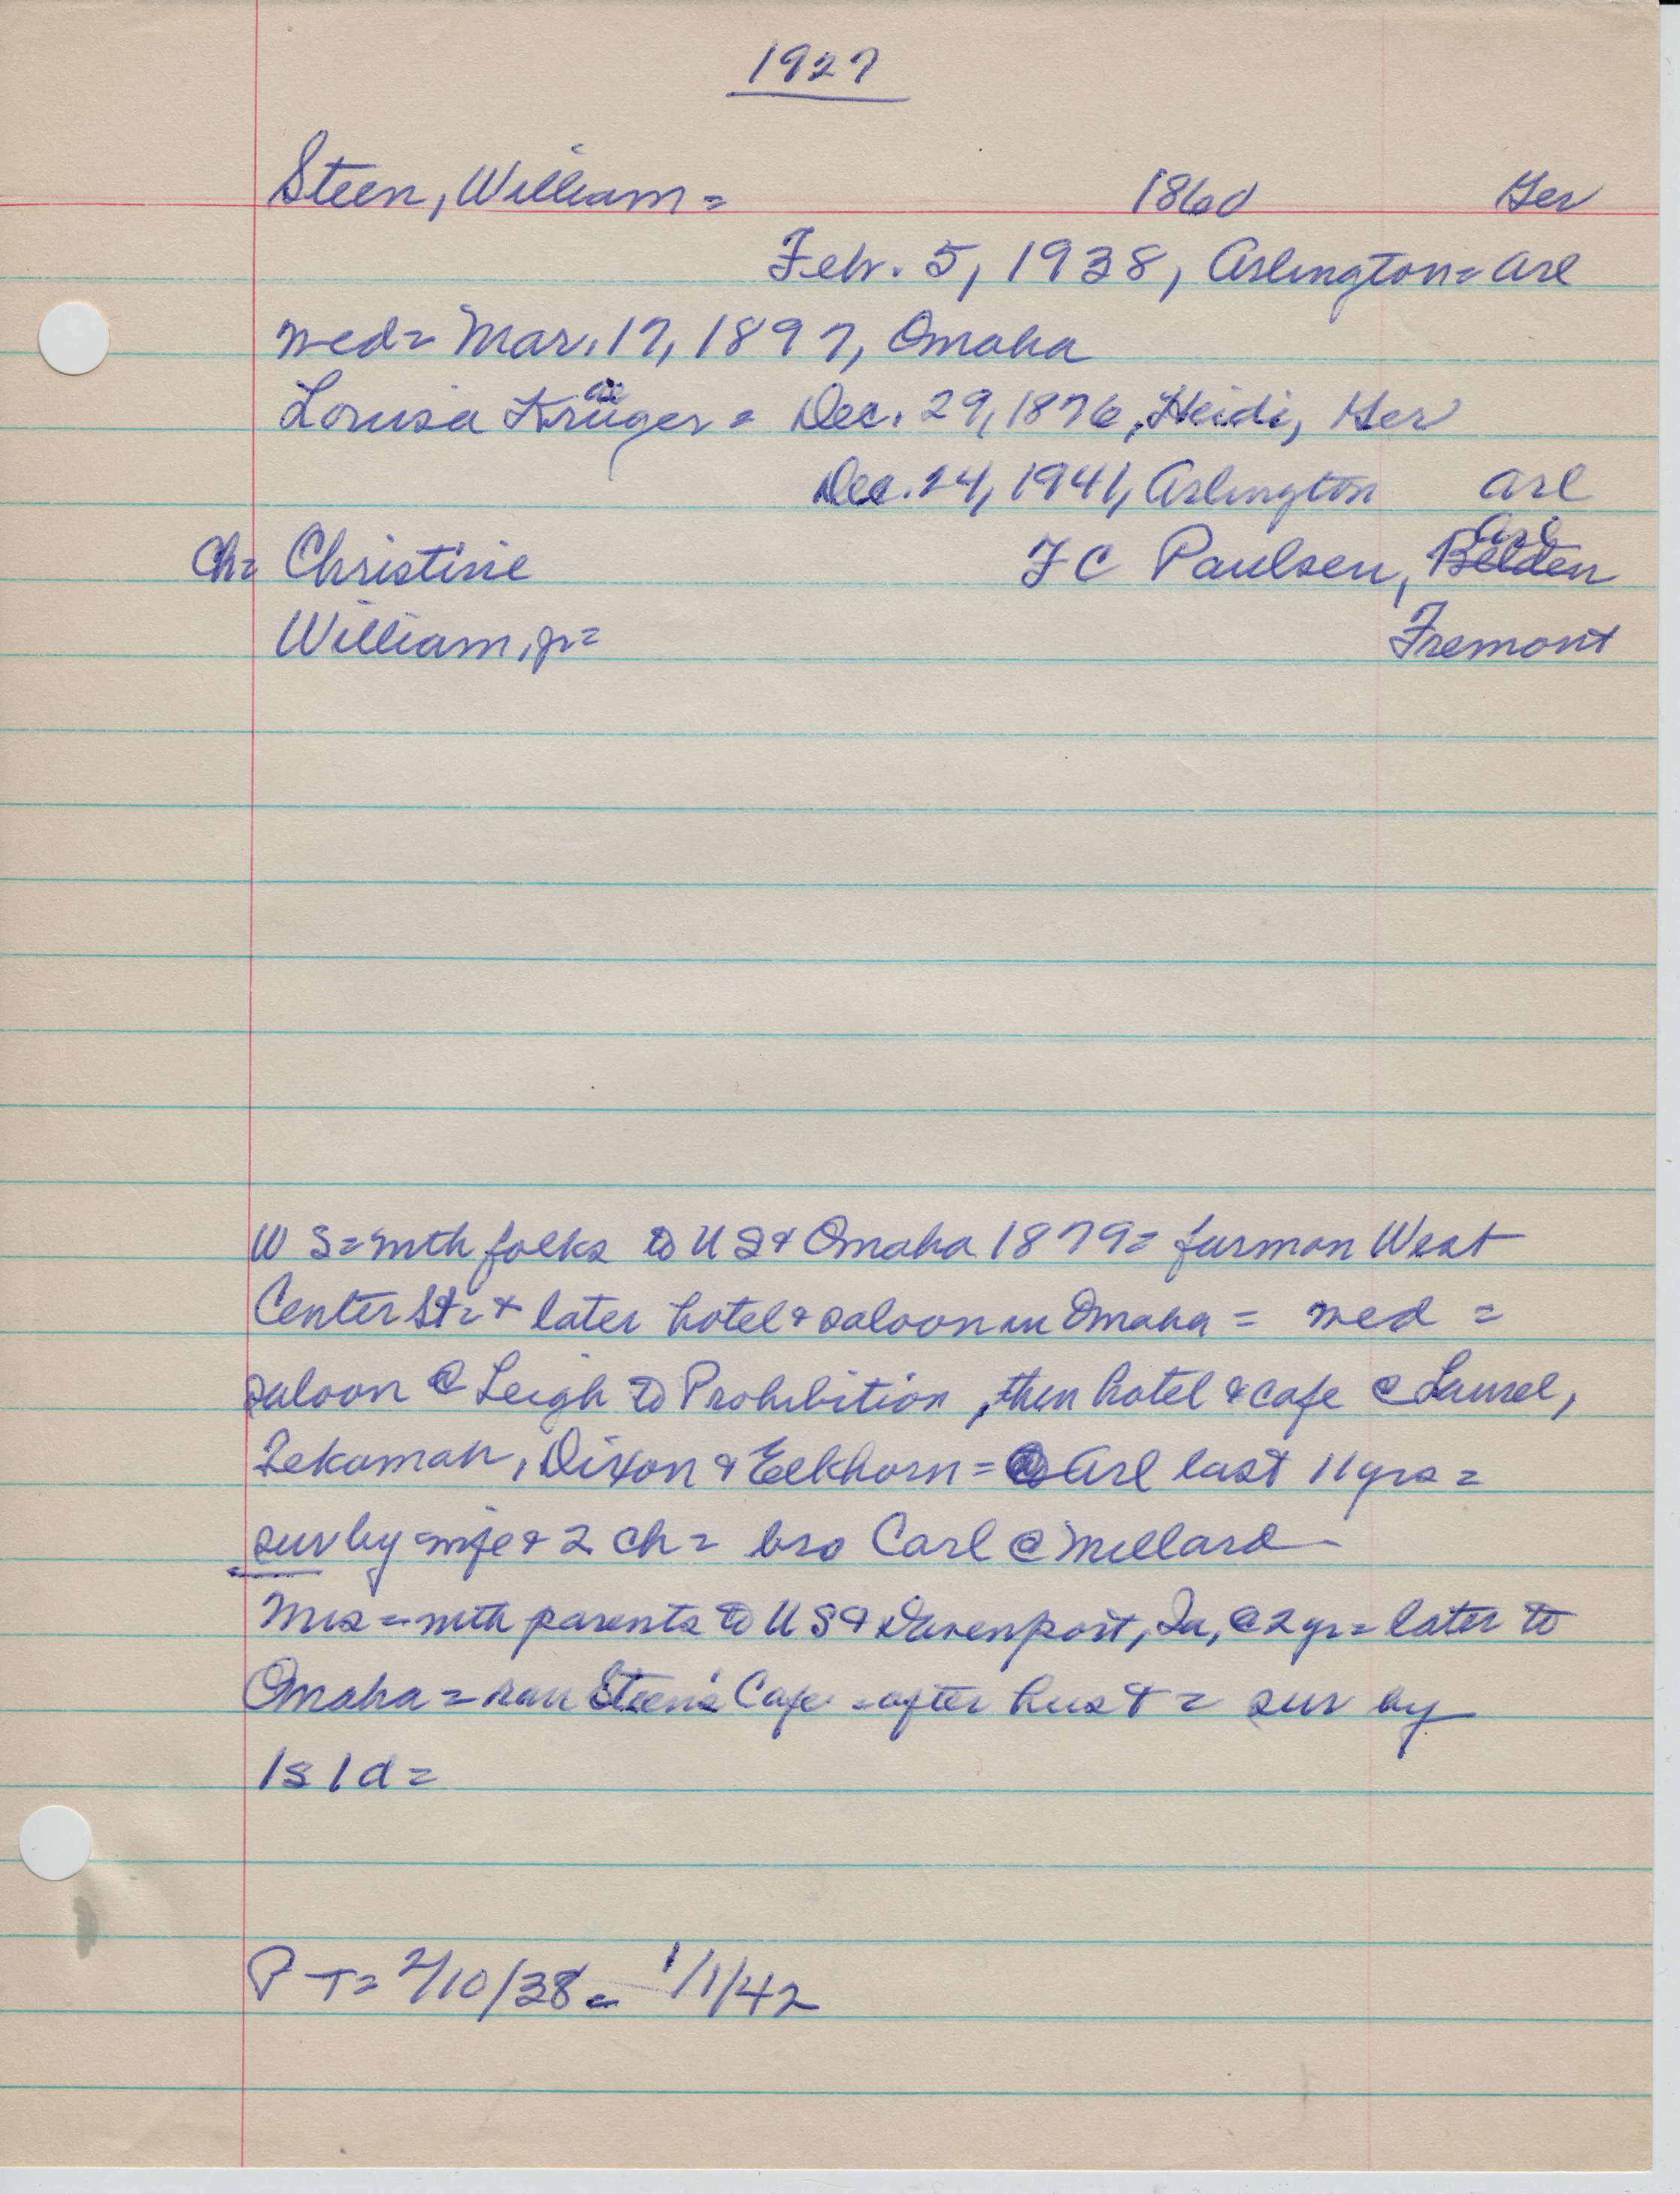 1927
Steen, William = 1860 Ger
Febr. 5, 1938, Arlington = Arl
wed = Mar. 17, 1897, Omaha
ae
Louisa Krüger = Dec. 29, 1876, Heidi, Ger
Dec. 24, 1941, Arlington Arl
Arl
Ch = Christine F C Paulsen, Belden
William, jr = Fremont
W S = with folks to U S & Omaha 1879 = farm on West
Center St = & later hotel & saloon in Omaha = wed =
saloon @ Leigh to Prohibition, then hotel & cafe @ Laurel,
Tekamah, Dixon & Elkhorn = Arl last 11 yrs =
sur by = wife & 2 ch = bro Carl @ Millard
Mrs = with parents to U S & Davenport, Ia, @ 2 yr = later to
Omaha = ran Steen's Cafe = after hus † = sur by
1s 1d =
P T = 2/10/38 = 1/1/42